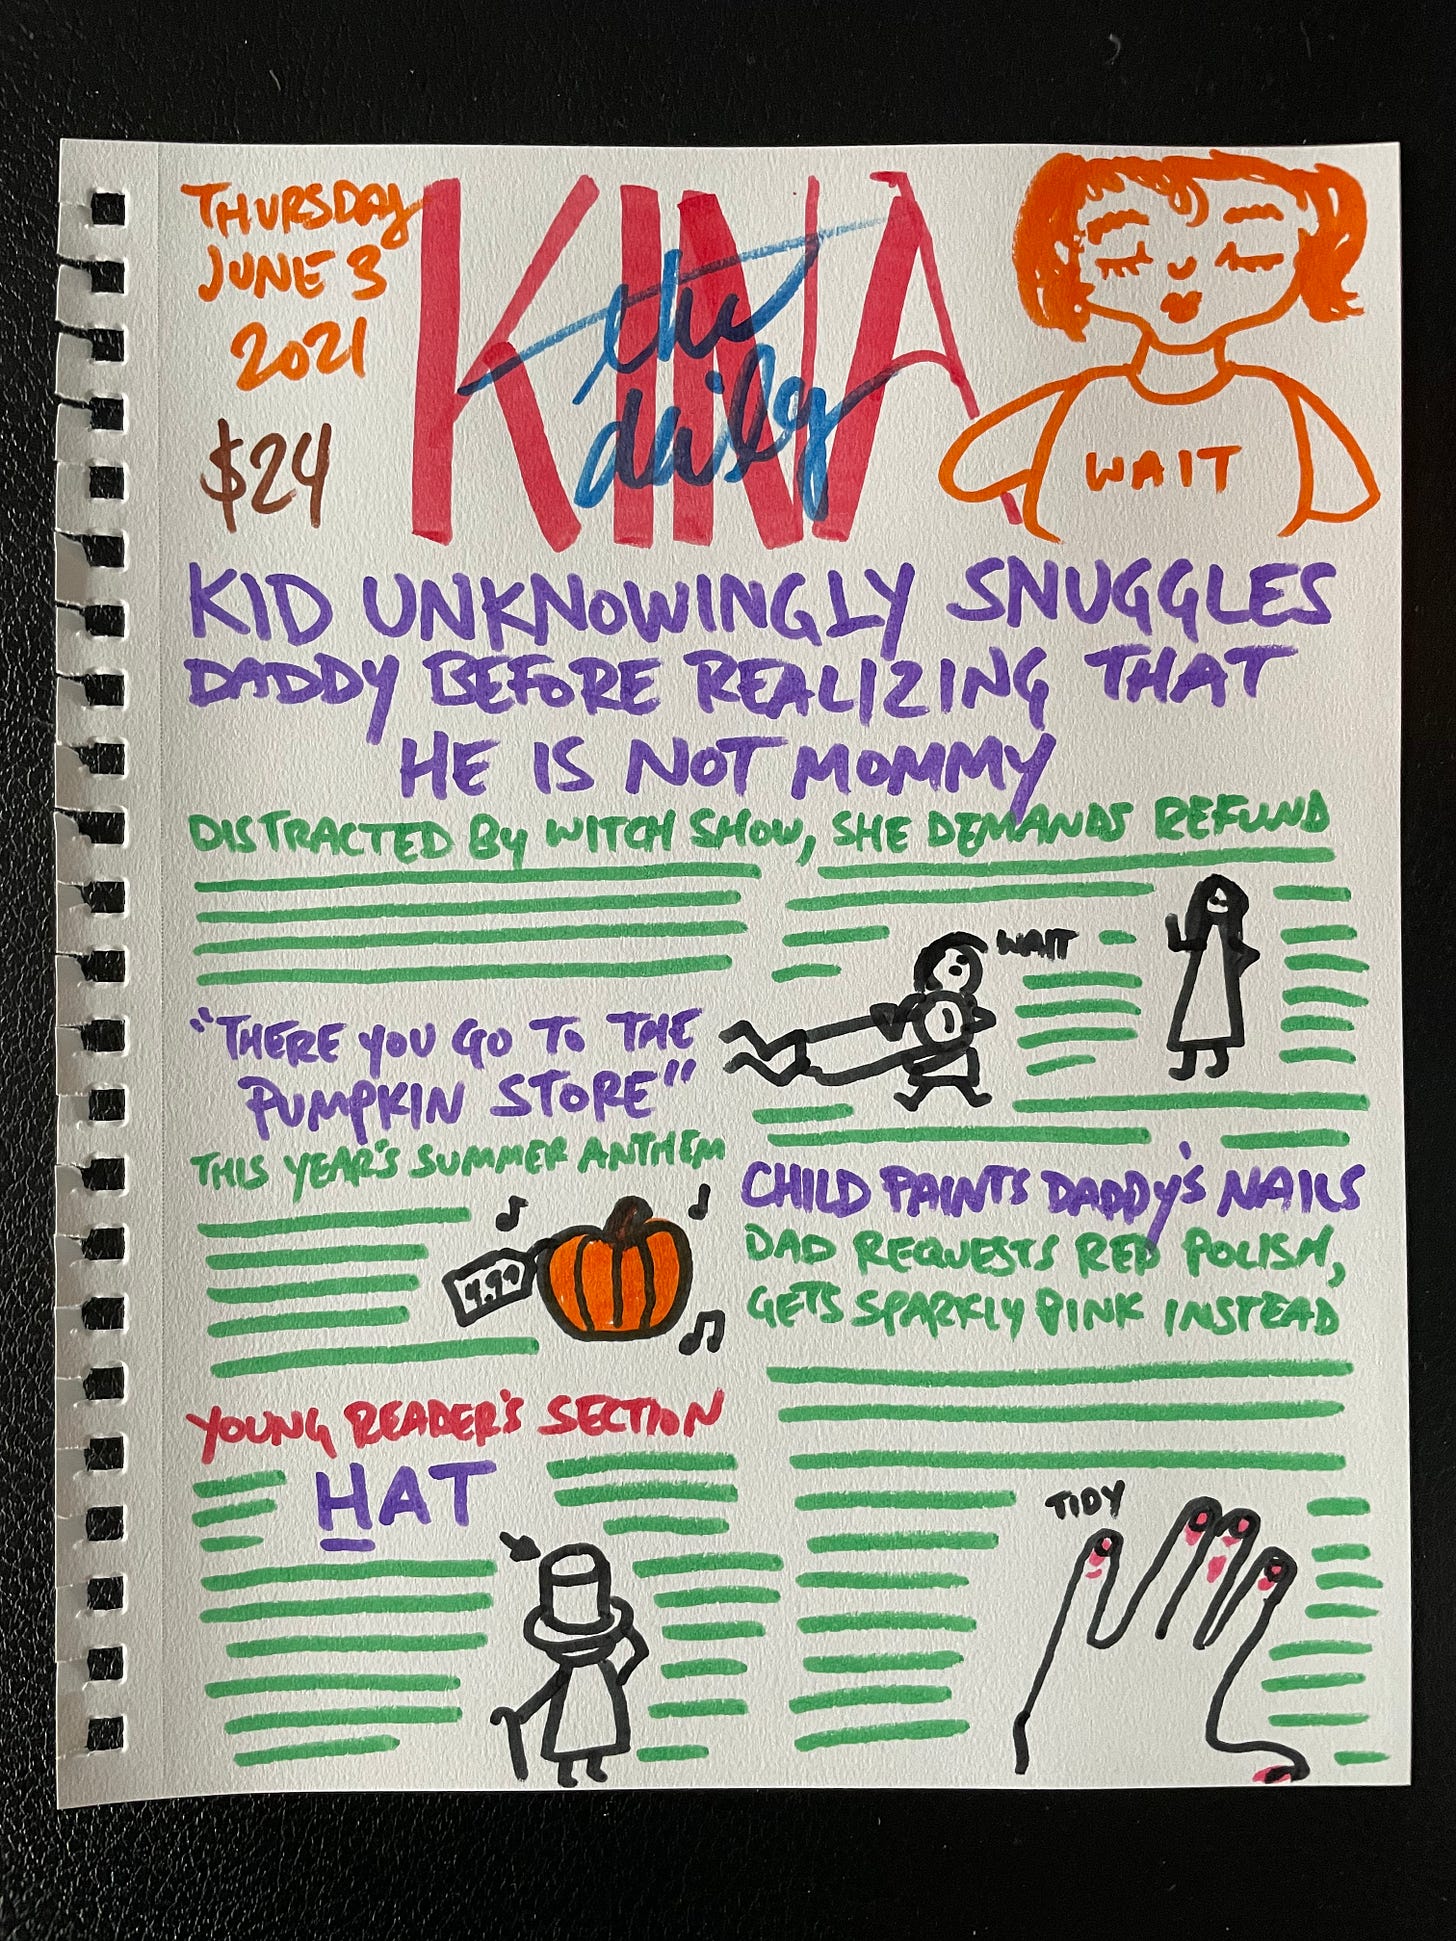 THURSDAY
JUNE 3
2021
$24
KINA
the
daily
WAIT
KID UNKNOWINGLY SNUGGLES
DADDY BEFORE REALIZING THAT
HE IS NOT MOMMY
DISTRACTED BY WITCH SHOW, SHE DEMANDS REFUND
WAIT
"THERE YOU GO TO THE
PUMPKIN STORE"
THIS YEAR'S SUMMER ANTHEM
4.99
CHILD PAINTS DADDY'S NAILS
DAD REQUESTS RED POLISH,
GETS SPARKLY PINK INSTEAD
TIDY
YOUNG READER'S SECTION
HAT